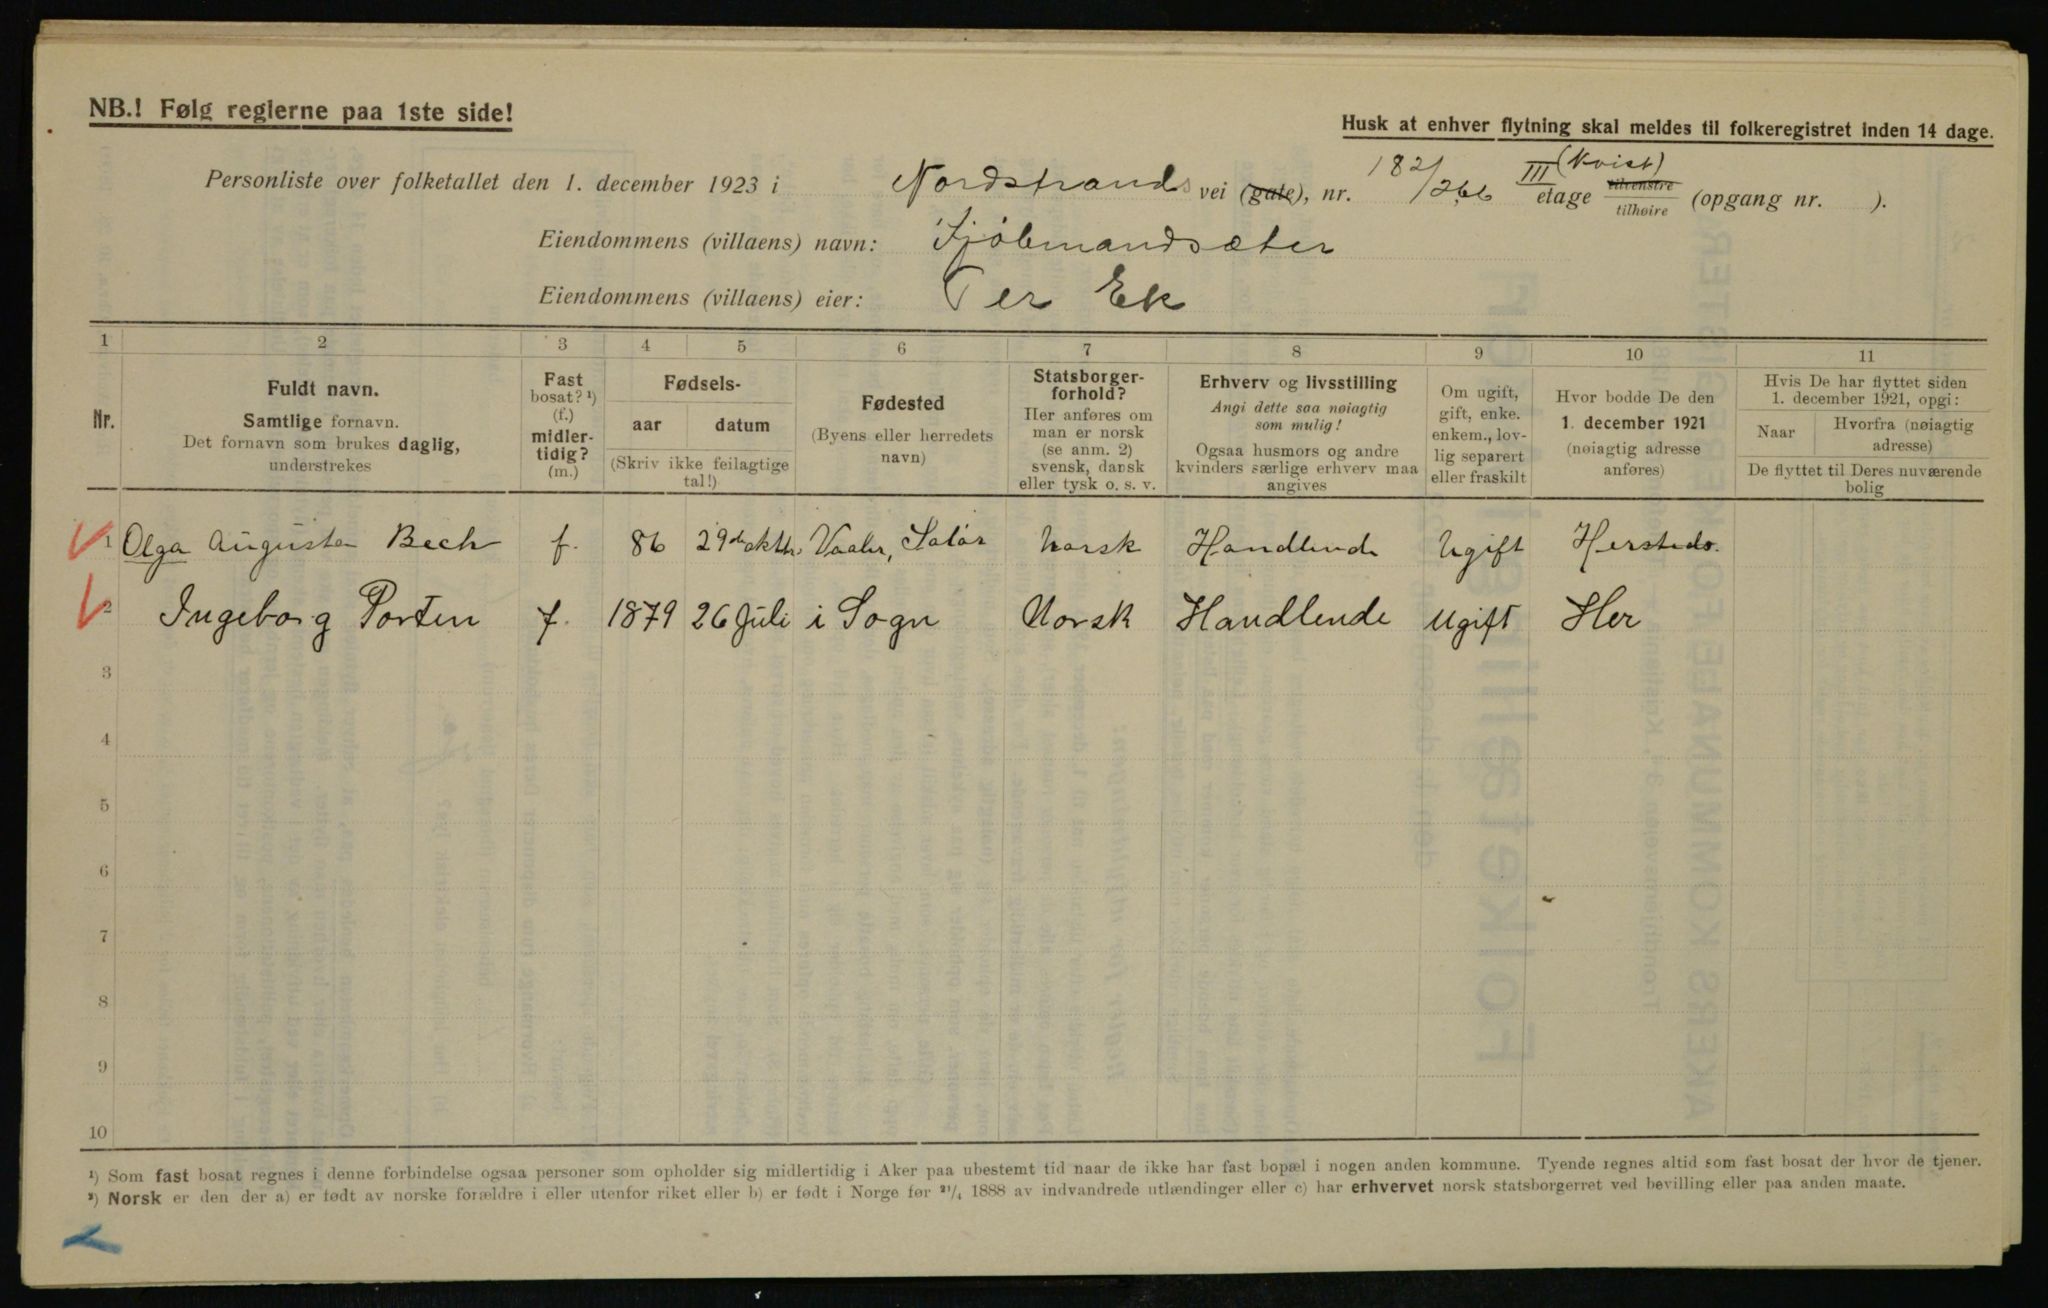 NB.! Følg reglerne paa 1ste side!
Husk at enhver flytning skal meldes til folkeregistret inden 14 dage.
Personliste over folketallet den 1. december 1923 i Nordstrands vei (gate), nr. 182/266 III (Kvist) etage tilvenstre tilhøire (opgang nr. ).
Eiendommens (villaens) navn: Sjömandsæter
Eiendommens (villaens) eier: Per Ek
1 2 3 4 5 6 7 8 9 10 11
Nr.
Fuldt navn.
Samtlige fornavn.
Det fornavn som brukes daglig,
understrekes
Fast
bosat? ¹)
(f.)
midler-
tidig?
(m.)
Fødsels-
aar datum
(Skriv ikke feilagtige
tal!)
Fødested
(Byens eller herredets
navn)
Statsborger-
forhold?
Her anføres om
man er norsk
(se anm. 2)
svensk, dansk
eller tysk o. s. v.
Erhverv og livsstilling
Angi dette saa nøiagtig
som mulig!
Ogsaa husmors og andre
kvinders særlige erhverv maa
angives
Om ugift,
gift, enke.
enkem., lov-
lig separert
eller fraskilt
Hvor bodde De den
1. december 1921
(nøiagtig adresse
anføres)
Hvis De har flyttet siden
1. december 1921, opgi:
Naar Hvorfra (nøiagtig
adresse)
De flyttet til Deres nuværende
bolig
1 Olga Augusta Bech f. 86 29de oktbr. Vaaler, Solör Norsk Handlende Ugift Hersteds.
2 Ingeborg Porten f. 1879 26 Juli i Sogn Norsk Handlende Ugift Her
3
4
5
6
7
8
9
10
¹) Som fast bosat regnes i denne forbindelse ogsaa personer som opholder sig midlertidig i Aker paa ubestemt tid naar de ikke har fast bopæl i nogen anden kommune. Tyende regnes altid som fast bosat der hvor de tjener.
²) Norsk er den der a) er født av norske forældre i eller utenfor riket eller b) er født i Norge før ²¹/₄ 1888 av indvandrede utlændinger eller c) har erhvervet norsk statsborgerret ved bevilling eller paa anden maate.